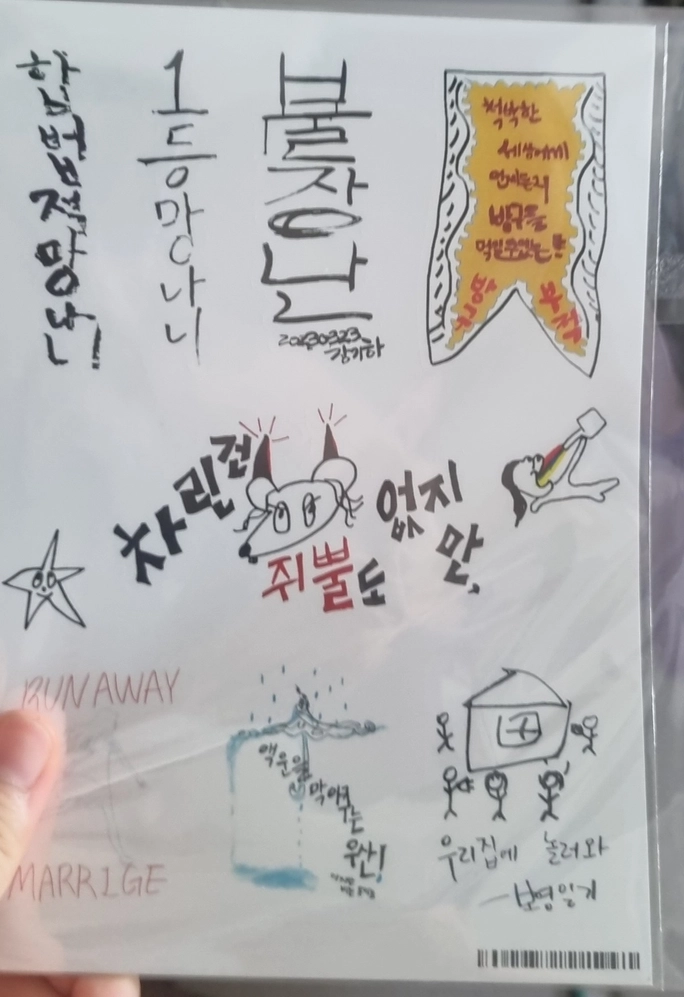 합법적망나니!
1등망나니
불장난
20230323
장기하
척박한
세상에게
언제든지
방구를
먹일수있는
부적
차린건
쥐뿔도
없지만,
RUNAWAY
MARRIGE
액운을
막아주는
우산!
우리집에 놀러와
-보영일기